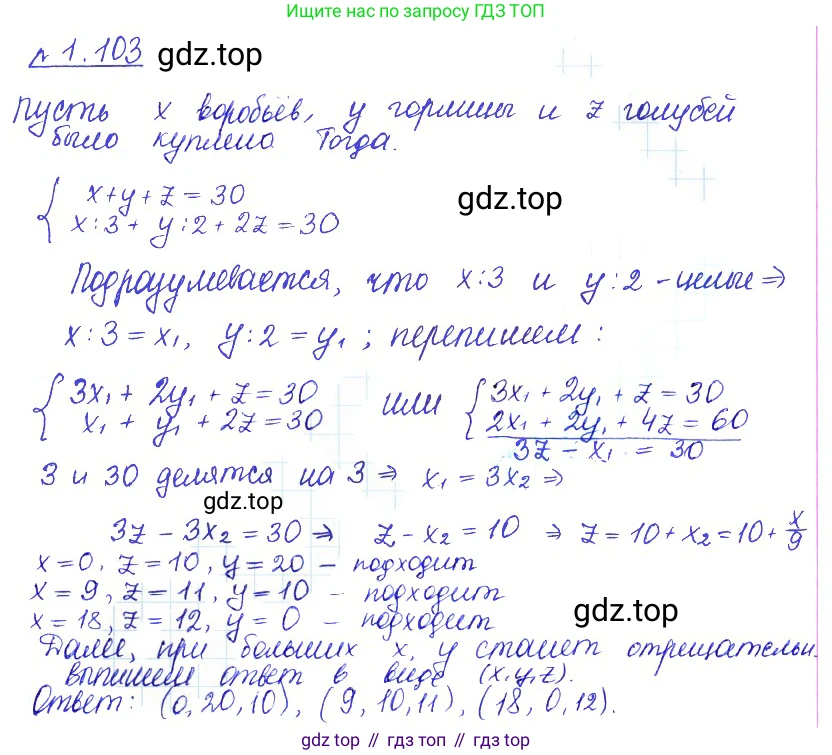 Ищите нас по запросу ГДЗ ТОП
№ 1.103 gdz.top
Пусть x воробьёв, y горлицы и z голубей
было куплено Тогда.
{ x+y+z=30
x:3+ y:2+2z=30
gdz.top
Подразумевается, что x:3 и y:2 - целые ⇒
x:3=x₁, y:2=y₁ ; перепишем :
{ 3x₁+ 2y₁+z=30 или { 3x₁+2y₁+z=30
x₁+ y₁+2z=30 2x₁+2y₁+4z=60
3z-x₁ = 30
3 и 30 делятся на 3 ⇒ x₁=3x₂ ⇒
gdz.top
3z-3x₂=30 ⇒ z-x₂=10 ⇒ z=10+x₂=10+x/9
x=0, z=10, y=20 - подходит
x=9, z=11, y=10 - подходит
x=18, z=12, y=0 - подходит
gdz.top
Далее, при больших x, y станет отрицательн.
выпишем ответ в виде (x,y,z).
Ответ: (0,20,10), (9,10,11), (18,0,12).
gdz top // гдз топ // gdz top